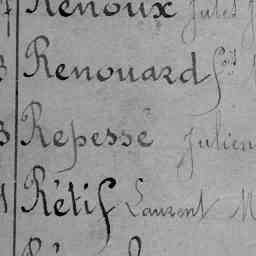 Renoux Jules
Renouard fois
Repessé Julien
Rétif Laurent M